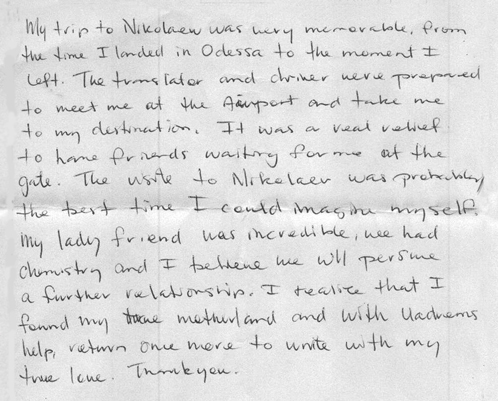 My trip to Nikolaew was very memorable, from
the time I landed in Odessa to the moment I
left. The translator and driver were prepared
to meet me at the Airport and take me
to my destination. It was a real relief
to have friends waiting for me at the
gate. The visite to Nikolaev was probabley
the best time I could imagine myself.
My lady friend was incredible, wee had
chemistry and I believe we will persue
a further relationship. I realize that I
found my true motherland and with
help, return once more to unite with my
true love. Thank you.